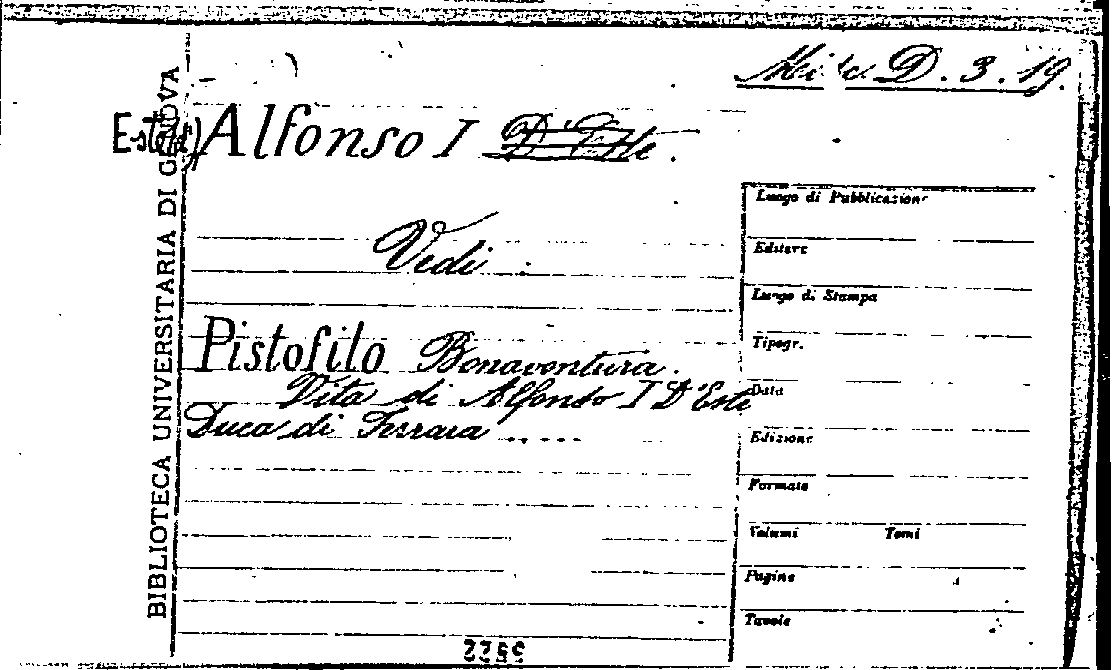 D. 3. 19.
Alfonso I D'Este.
Vedi :
Pistofilo Bonaventura.
Vita di Alfonso I D'Este
Duca di Ferrara .....
BIBLIOTECA UNIVERSITARIA DI GENOVA
Luogo di Pubblicazione
Editore
Luogo di Stampa
Tipogr.
Data
Edizione
Formato
Volumi Tomi
Pagine
Tavole